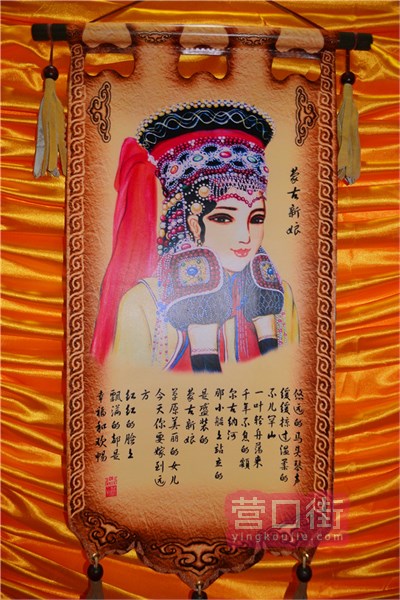 蒙古新娘
悠远的马头琴声
缓缓掠过温柔的
不儿罕山
一叶轻舟荡来
千年不息的额
尔古纳河
那小船上站立的
是盛装的
蒙古新娘
草原美丽的女儿
今天你要嫁到远
方
红红的脸上
飘满的都是
幸福和欢畅
营口街
yingkoujie.com